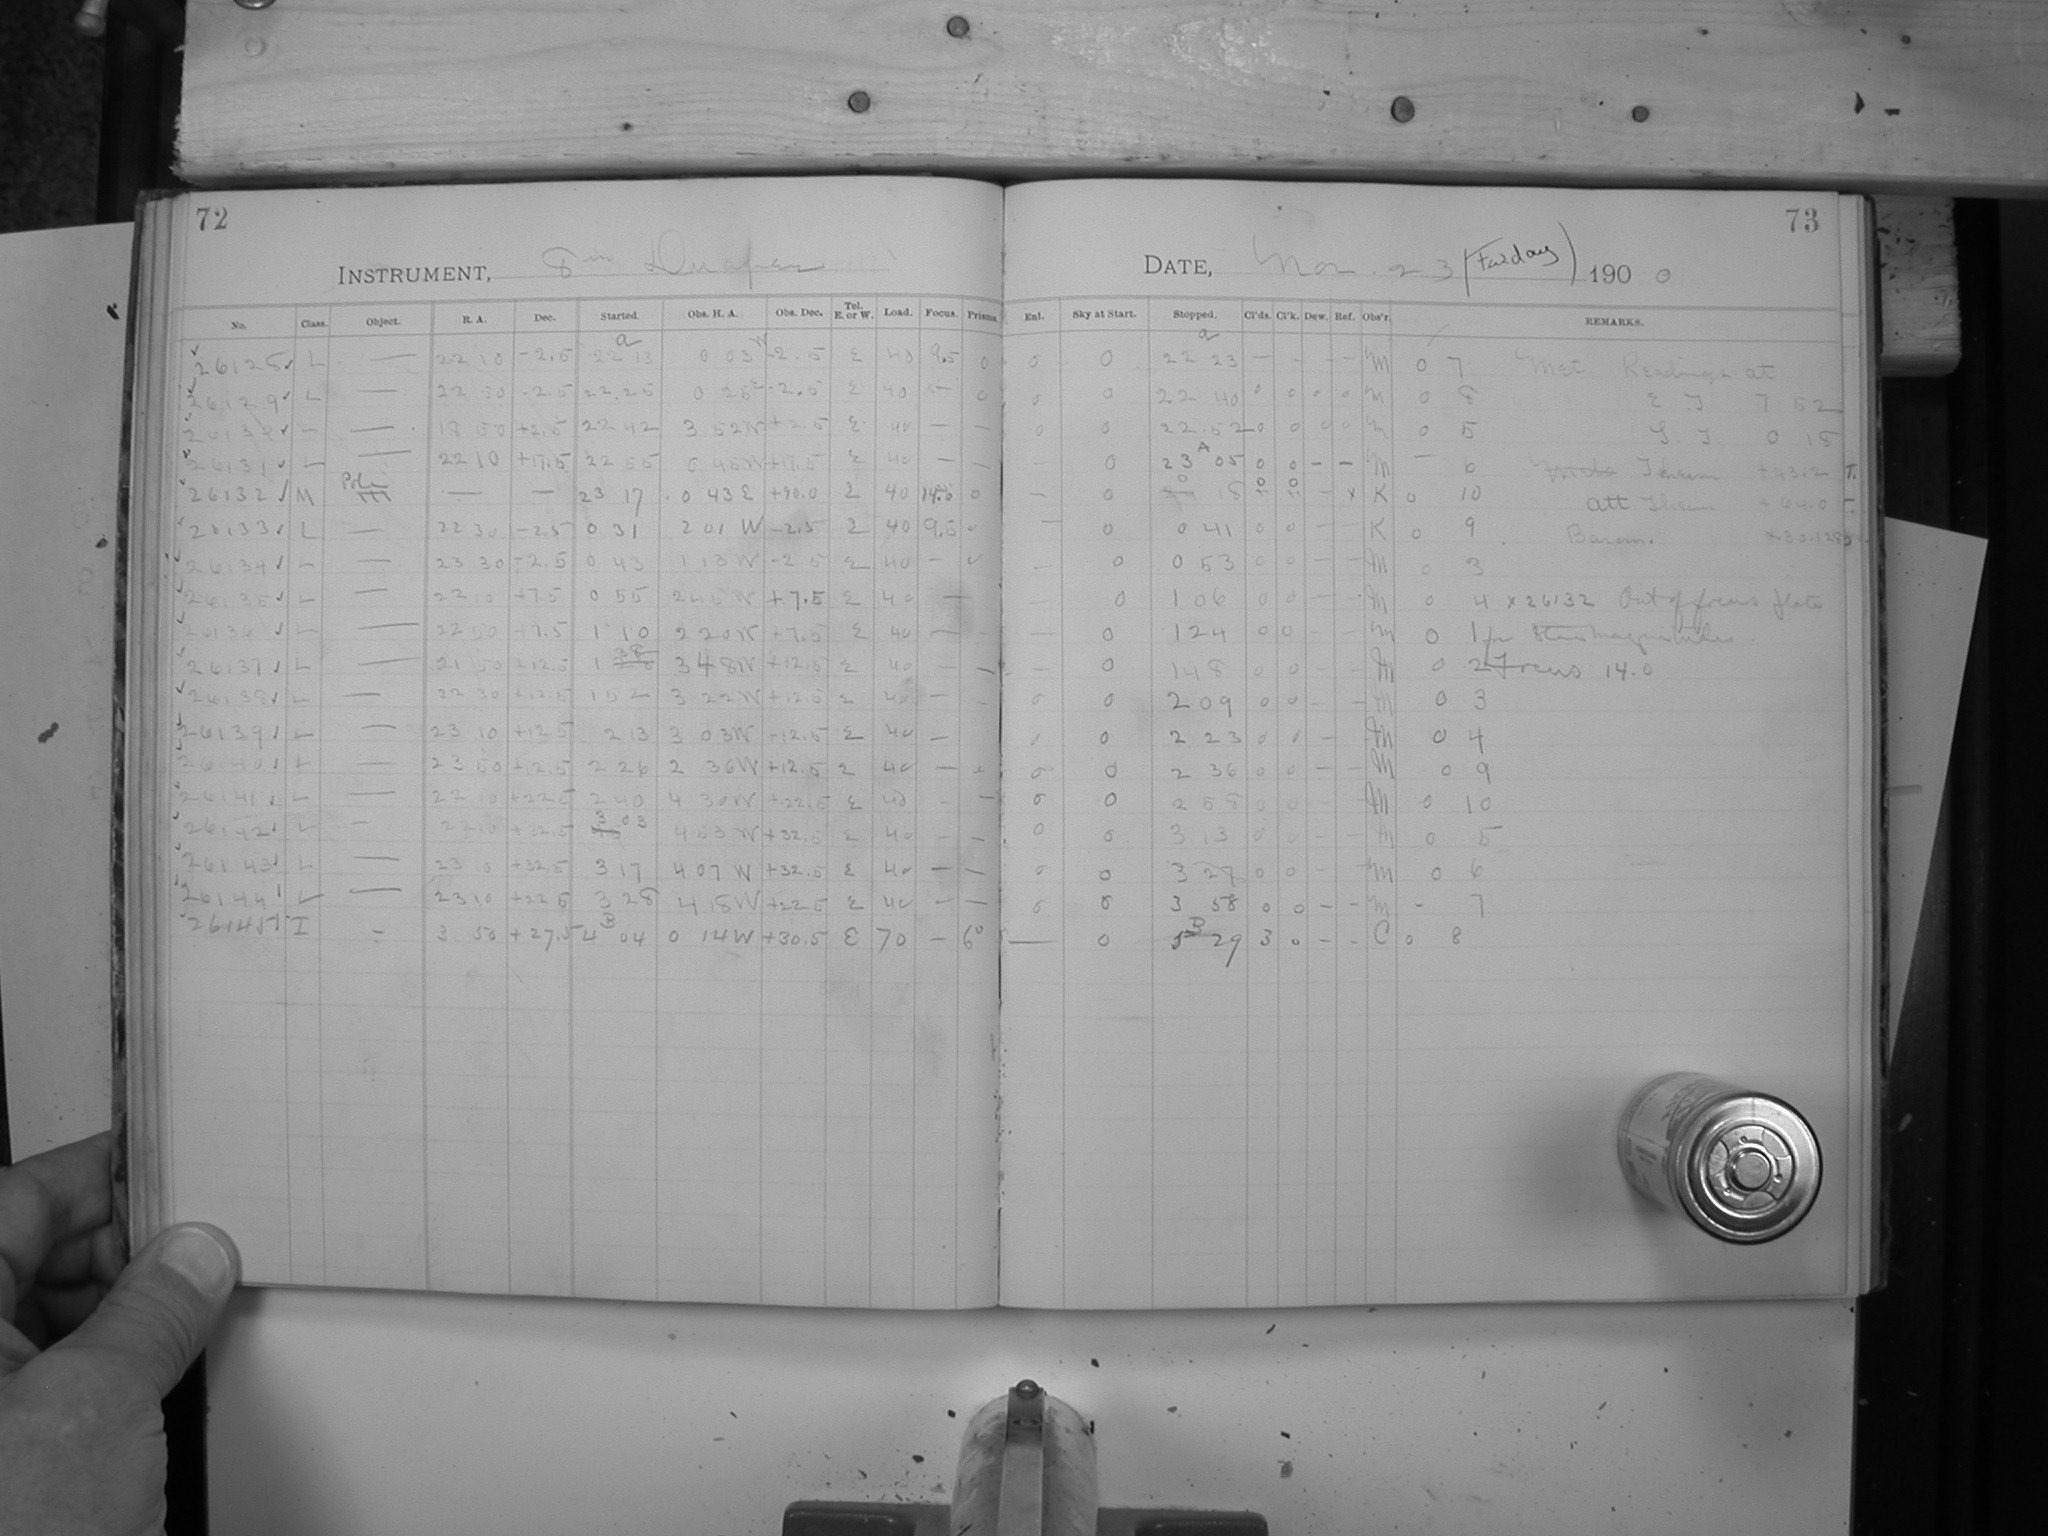 72
73
INSTRUMENT, 8 in Draper
DATE, Nov. 23 (Friday) 1900
No. Class. Object. R. A. Dec. Started. Obs. H. A. Obs. Dec. Tel. E. or W. Load. Focus. Prisms. Enl. Sky at Start. Stopped. Cl'ds. Cl'k. Dew. Ref. Obs'r. REMARKS.
26128 L — 22 10 -2.5 22 13 0 03 W -2.5 E 40 9.5 0 0 0 22 23 — — — — M 0 7 Met Readings at
26129 L — 22 50 -2.5 22 25 0 25 E -2.5 E 40 — 0 0 0 22 40 0 0 0 0 M 0 8 E T 7 52
26130 — — 18 50 +2.5 22 42 3 52 W +2.5 E 40 — — 0 0 22 52 0 0 0 0 M 0 5 S. T 0 18
26131 L — 22 10 +17.5 22 55 0 45 W +17.5 E 40 — — — 0 23 05 0 0 — — M — 6 Therm +43.2
26132 M Pole — — 23 17 0 43 E +90.0 E 40 14.0 0 — 0 0 18 0 0 — x K 0 10 Att Therm +64.0
26133 L — 22 30 -2.5 0 31 2 01 W -2.5 E 40 9.5 0 — 0 0 41 0 0 — — K 0 9 Barom.
26134 L — 23 30 -2.5 0 43 1 13 W -2.5 E 40 — 0 — 0 0 53 0 0 — — M 0 3
26135 L — 22 10 +7.5 0 55 2 45 W +7.5 E 40 — — 0 1 06 0 0 — — M 0 4 x 26132 Out of focus plate
26136 L — 22 50 +7.5 1 10 2 20 W +7.5 E 40 — — — 0 1 24 0 0 — — M 0 1 for Star magnitudes
26137 L — 21 50 +12.5 1 38 3 48 W +12.5 E 40 — — — 0 1 48 0 0 — — M 0 2 Focus 14.0
26138 L — 22 30 +12.5 1 52 3 22 W +12.5 E 40 — — 0 0 2 09 0 0 — — M 0 3
26139 L — 23 10 +12.5 2 13 3 03 W +12.5 E 40 — 0 0 2 23 0 0 — — M 0 4
26140 L 23 50 +12.5 2 26 2 36 W +12.5 E 40 — 0 0 2 36 0 0 — — M 0 9
26141 L — 22 10 +22.5 2 40 4 30 W +22.5 E 40 — — 0 0 2 58 0 0 — — M 0 10
26142 L — 22 10 +32.5 3 03 4 53 W +32.5 E 40 — — 0 0 3 13 0 0 — — M 0 5
26143 L — 23 10 +32.5 3 17 4 07 W +32.5 E 40 — — 0 0 3 27 0 0 — — M 0 6
26144 L — 23 10 +22.5 3 28 4 18 W +22.5 E 40 — — 0 0 3 58 0 0 — — M — 7
26145 I = 3 50 +27.5 4 04 0 14 W +30.5 E 70 — 6° — 0 5 29 3 0 — — C 0 8